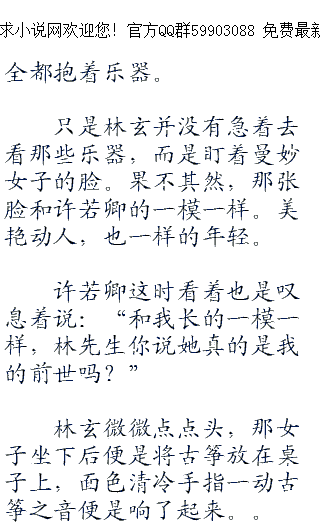 求小说网欢迎您! 官方QQ群59903088 免费最新
全都抱着乐器。
只是林玄并没有急着去
看那些乐器，而是盯着曼妙
女子的脸。果不其然，那张
脸和许若卿的一模一样。美
艳动人，也一样的年轻。
许若卿这时看着也是叹
息着说：“和我长的一模一
样，林先生你说她真的是我
的前世吗？”
林玄微微点点头，那女
子坐下后便是将古筝放在桌
子上，面色清冷手指一动古
筝之音便是响了起来。。